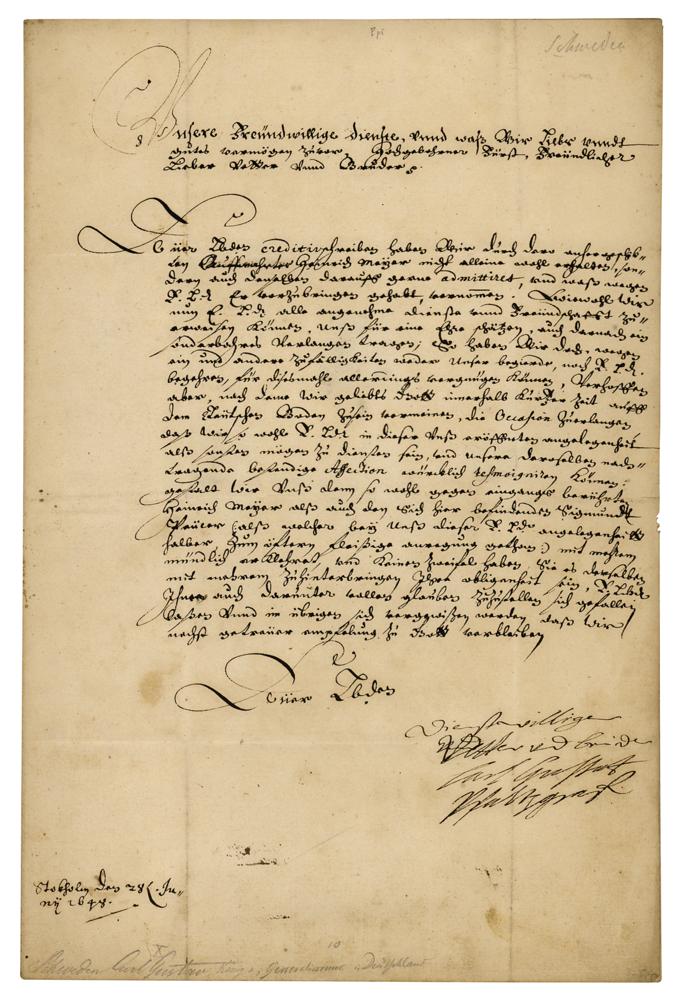 Schweden
Unsere Freündwillige dienste, vnnd waß Wir Liebs vnndt
gutes vermögen zuvor. Hochgebohrner Fürst, Freündlicher
Lieber Vetter Vnnd Bruder,
Euer Lbden creditivschreiben haben Wir durch dero anhero
Heinrich Meyer nicht alleine wohl erhalten, son=
dern auch denselben darauff gerne admittiret, vnd waß wegen
E. Ld. Er vorzubringen gehabt, vernommen. Wiewohl Wir
nun E. Ld. alle angenehme dienste vnnd Freündschafft zu=
erweisen Können, Vnß für eine Ehre schätzen, auch darnach ein
sonderbahres Verlangen tragen; So haben Wir doch, wegen
ein und andere zufälligkeiten weder Unser begierde, noch E. Ld.
begehren, für dißmahl allerdings vergnügen Können, Verhoffen
aber, nach deme Wir geliebts Gott innerhalb Kurtzer Zeit auff
dem Teütschen Boden zusein vermeinen, die Occasion Zuerlangen
daß Wir so wohl E. Ld. in dieser Vnß eröffneten angelegenheit
als sonsten mögen zu diensten sein, vnd Unsere deroselben
tragende bestendige Affection würcklich tesmoigniren Können.
gestalt Wir Vnß dann so wohl gegen eingangs berührten
Heinrich Meyer als auch den Sich hier befindenden Sigmundt
(als welcher bey Vnß dieser E. Ld. angelegenheit
halber Zum öfftern fleißige anregung gethan) mit mehren
mündlich erklehret, vnd Keinen Zweifel haben, Sie es derselben
mit mehrem Zuhinterbringen Ihrer obligenheit sein,
Ihnen auch darunter vollen glauben Zuzustellen sich gefallen
laßen Vnnd in übrigen sich vergewißern werden, daß Wir
nechst getreüer empfelung zu Gott verbleiben
Euer Lbden
Dienstwilliger
Vetter vnd bruder
Carl Gustaf
Pfaltzgraf
Stokholm den 28. Ju=
ny 1648.
10
Schweden Carl Gustav König, Generalissimus Deutschland